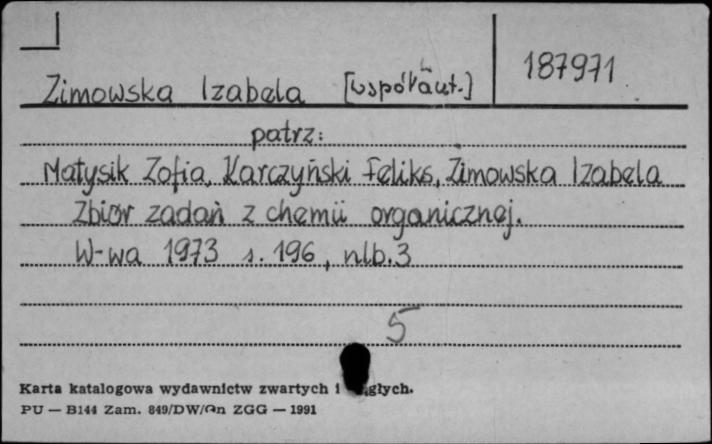 Zimowska Izabela [współaut.]
187971
patrz:
Matysik Zofia, Karczyński Feliks, Zimowska Izabela
Zbiór zadań z chemii organicznej.
W-wa 1973 s. 196, nlb.3
5
Karta katalogowa wydawnictw zwartych i
PU — B144 Zam. 849/DW/Gn ZGG — 1991